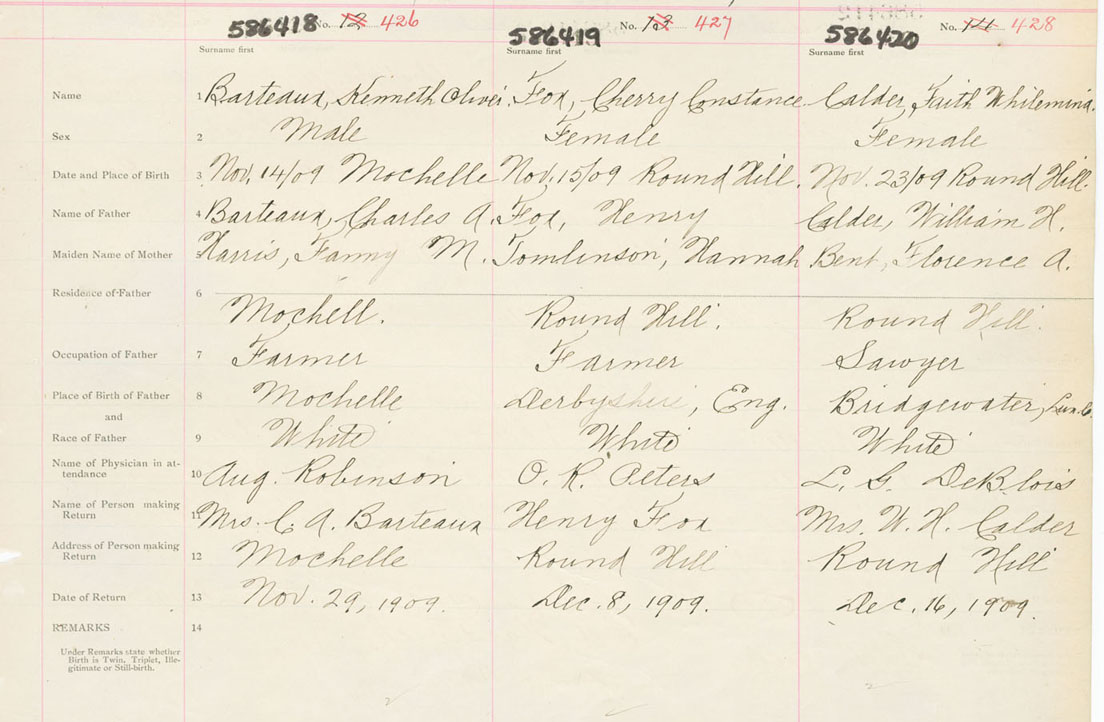 586418 No. 12 426
586419 No. 13 427
586420 No. 14 428
Surname first Surname first Surname first
Name 1 Barteaux, Kenneth Oliver. Fox, Cherry Constance Calder, Faith Whilemina.
Sex 2 Male Female Female
Date and Place of Birth 3 Nov. 14/09 Mochelle Nov. 15/09 Round Hill. Nov. 23/09 Round Hill.
Name of Father 4 Barteaux, Charles A. Fox, Henry Calder, William H.
Maiden Name of Mother 5 Harris, Fanny M. Tomlinson, Hannah Bent, Florence A.
Residence of Father 6 Mochell. Round Hill. Round Hill.
Occupation of Father 7 Farmer Farmer Sawyer
Place of Birth of Father 8 Mochelle Derbyshire, Eng. Bridgewater, Lun. Co.
and
Race of Father 9 White White White
Name of Physician in at-
tendance 10 Aug. Robinson O. R. Peters L. G. DeBlois
Name of Person making
Return 11 Mrs. C. A. Barteaux Henry Fox Mrs. W. H. Calder
Address of Person making
Return 12 Mochelle Round Hill Round Hill
Date of Return 13 Nov. 29, 1909. Dec. 8, 1909. Dec. 16, 1909.
REMARKS 14
Under Remarks state whether
Birth is Twin, Triplet, Ille-
gitimate or Still-birth.